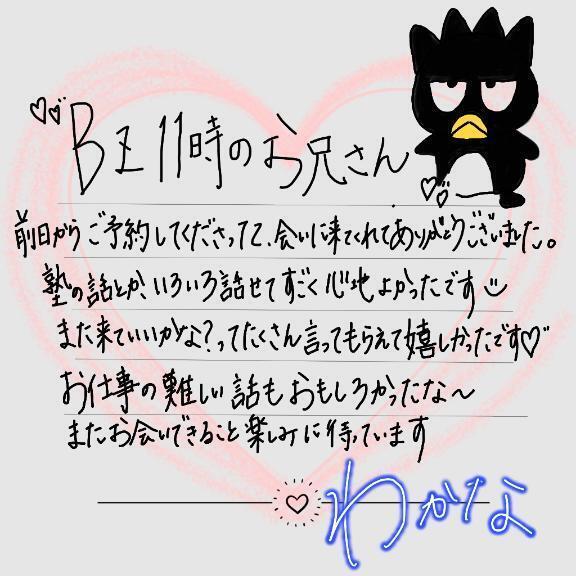 BZ 11時のお兄さん
前日からご予約してくださって、会いに来てくれてありがとうございました。
塾の話とか、いろいろ話せてすごく心地よかったです
また来ていいかな?ってたくさん言ってもらえて嬉しかったです♡
お仕事の難しい話もおもしろかったな〜
またお会いできること楽しみに待っています
わかな